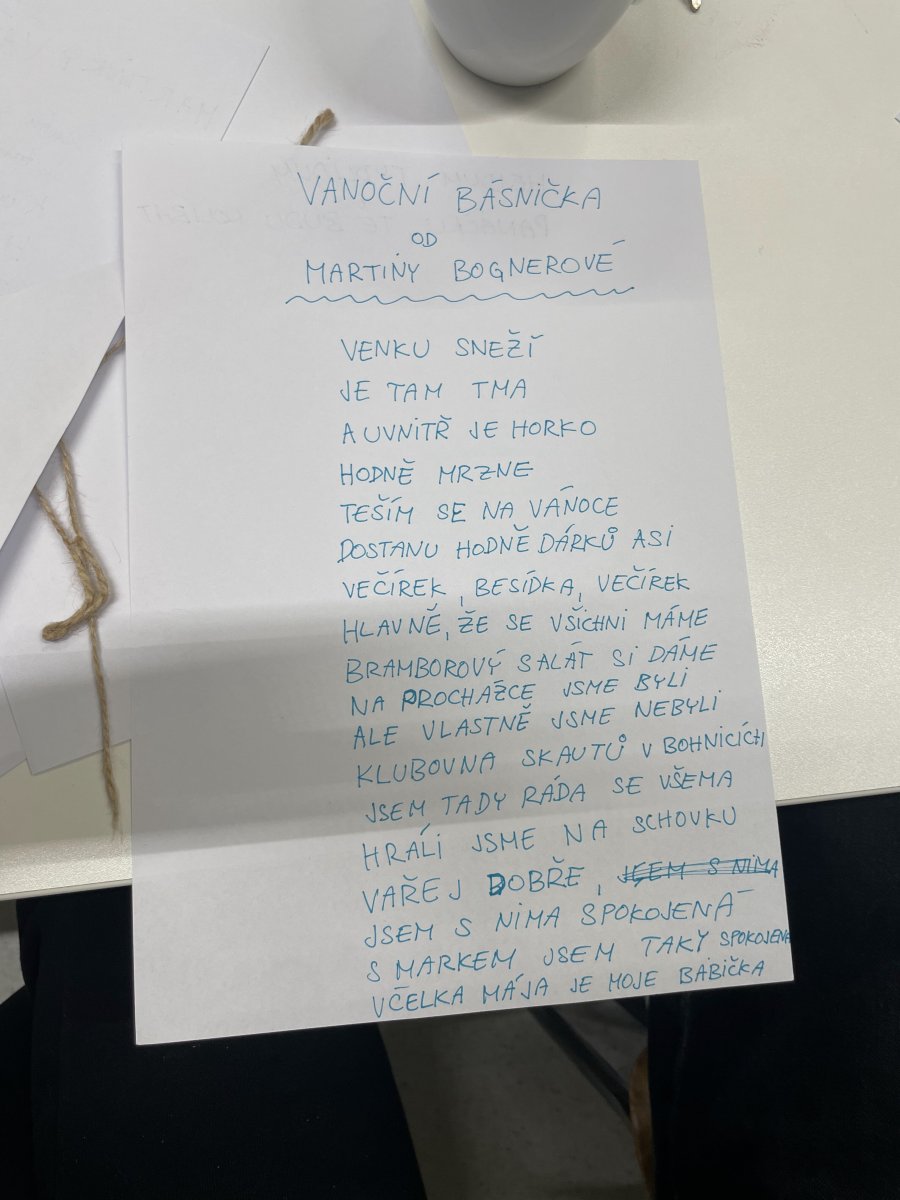 VANOČNÍ BÁSNIČKA
OD
MARTINY BOGNEROVÉ
VENKU SNEŽÍ
JE TAM TMA
A UVNITŘ JE HORKO
HODNĚ MRZNE
TEŠÍM SE NA VÁNOCE
DOSTANU HODNĚ DÁRKŮ ASI
VEČÍREK, BESÍDKA, VEČÍREK
HLAVNĚ, ŽE SE VŠICHNI MÁME
BRAMBOROVÝ SALÁT SI DÁME
NA PROCHÁZCE JSME BYLI
ALE VLASTNĚ JSME NEBYLI
KLUBOVNA SKAUTŮ V BOHNICÍCH
JSEM TADY RÁDA SE VŠEMA
HRÁLI JSME NA SCHOVKU
VAŘEJ DOBŘE, JSEM S NIMA
JSEM S NIMA SPOKOJENÁ
S MARKEM JSEM TAKY SPOKOJENÁ
VČELKA MÁJA JE MOJE BABIČKA